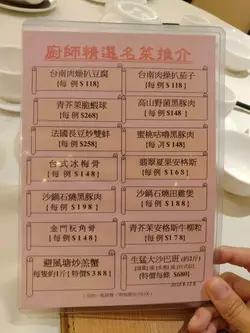 廚師精選名菜推介
台南肉燥扒豆腐
{每例$118}
台南肉燥扒茄子
{每例$118}
青芥茉脆蝦球
{每例$268}
高山野菌黑豚肉
{每例$148}
法國長豆炒雙蚌
{每例$258}
蜜桃咕嚕黑豚肉
{每例$148}
台式冰梅骨
{每例$148}
翡翠夏果安格斯
{每例$168}
沙鍋石燒黑豚肉
{每例$198}
沙鍋石燒田雞煲
{每例$188}
金門杬角骨
{每例$148}
青芥茉安格斯牛柳粒
{每例$178}
避風塘炒羔蟹
每隻約1斤{特價$388}
生猛大沙巴班
{特價每條 $680}